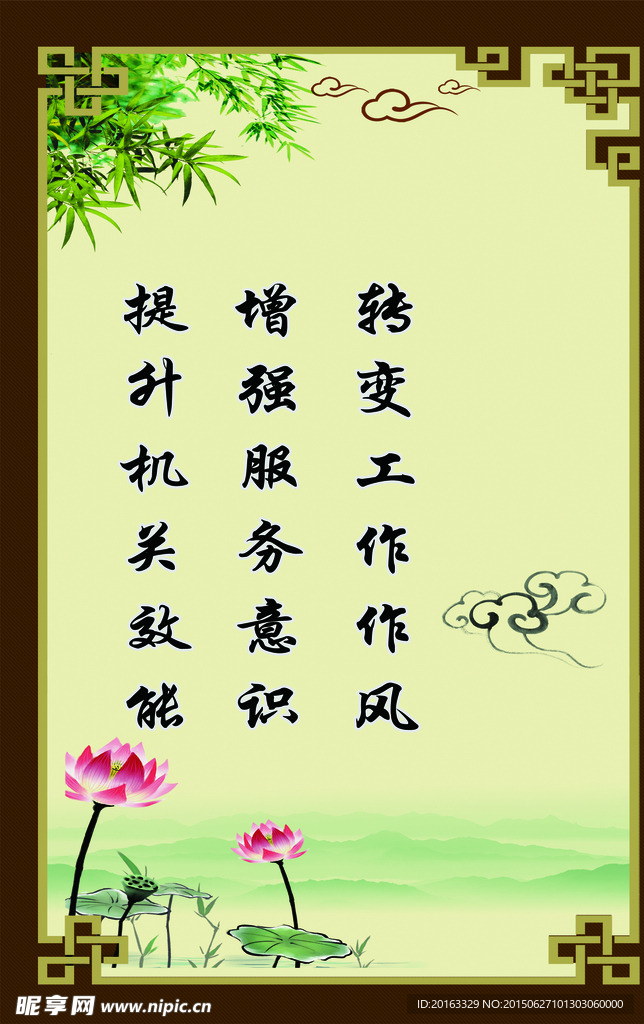 转变工作作风
增强服务意识
提升机关效能
昵享网 www.nipic.cn
ID:20163329 NO:20150627101303060000